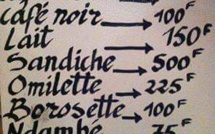 café noir → 100F
Lait → 150F
Sandiche → 500F
Omilette → 225F
Borosette → 100F
Ndambe 75F